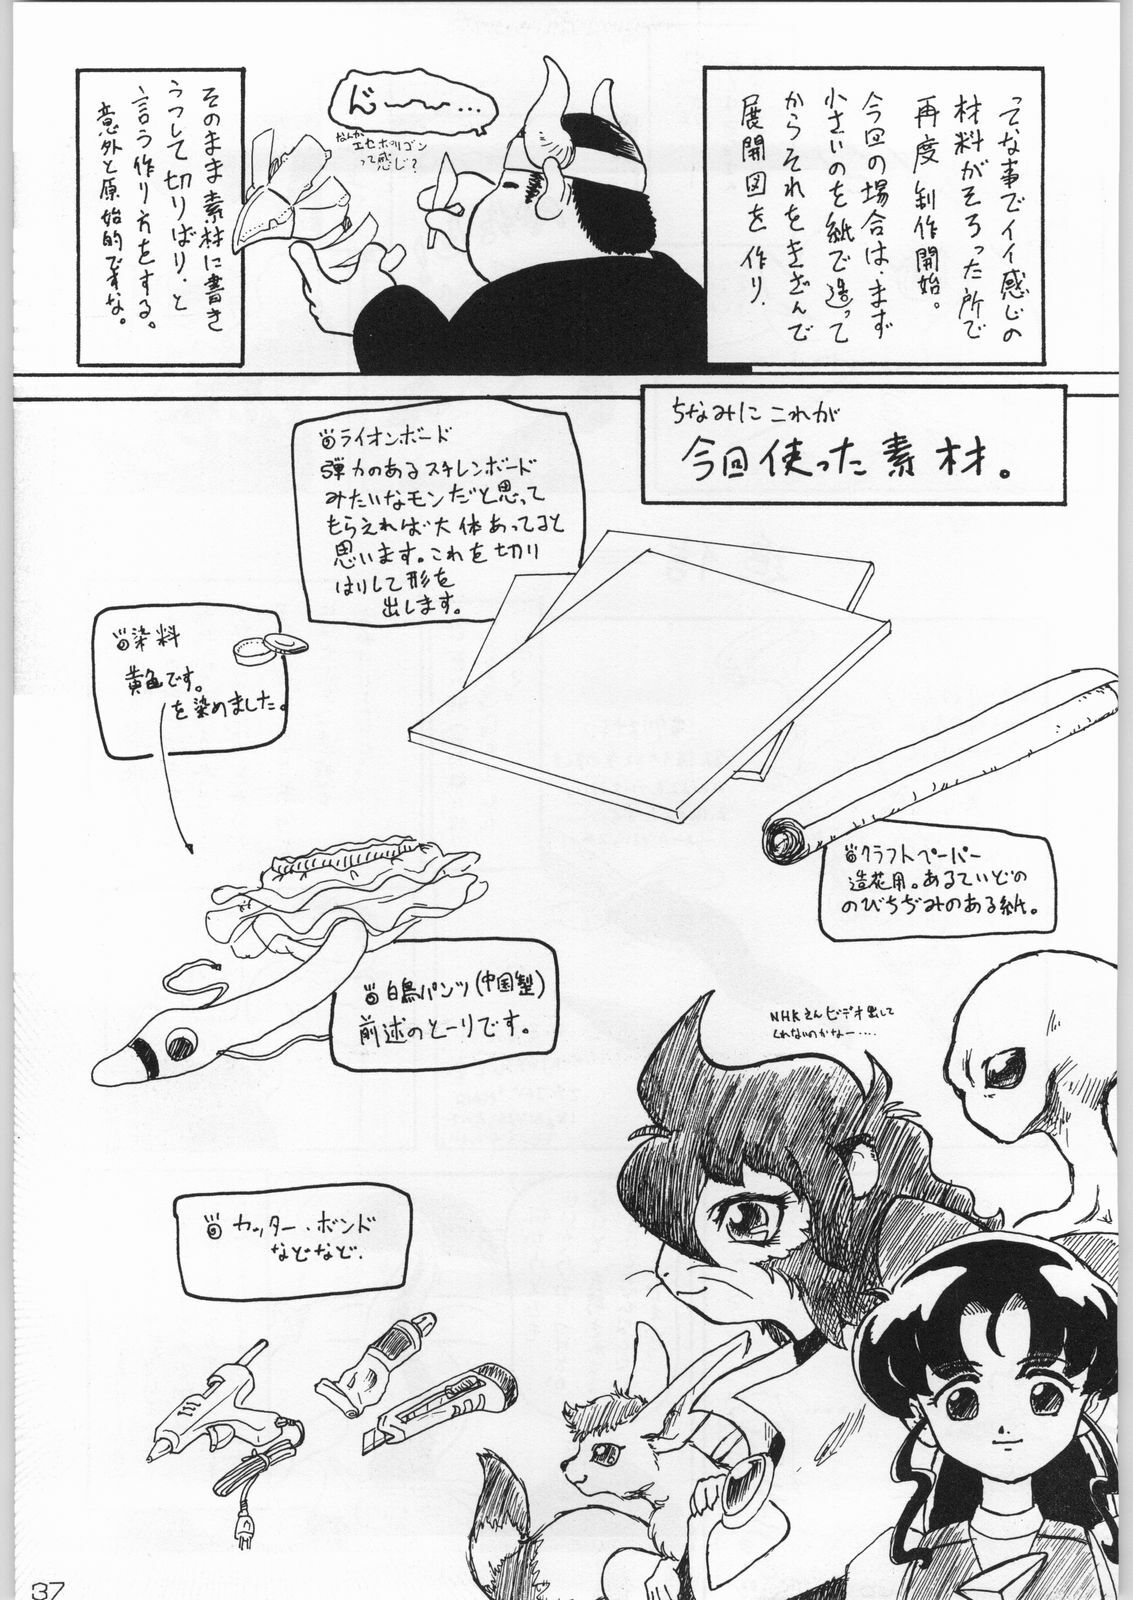 ってな事でイイ感じの
材料がそろった所で
再度製作開始。
今回の場合は、まず
小さいのを紙で造って
からそれをきざんで
展開図を作り、
ど〜〜〜…
なんか
エセポリゴン
って感じ?
そのまま素材に書き
うつして切りばり、と
言う作り方をする。
意外と原始的ですな。
ちなみにこれが
今回使った素材。
ライオンボード
弾力のあるスチレンボード
みたいなモンだと思って
もらえれば大体あってると
思います。これを切り
はりして形を
出します。
染料
黄色です。
を染めました。
クラフトペーパー
造花用。あるていどの
のびちぢみのある紙。
白鳥パンツ(中国製)
前述のとーりです。
NHKさんビデオ出して
くれないのかなー・・・・
カッター・ボンド
などなど.
37